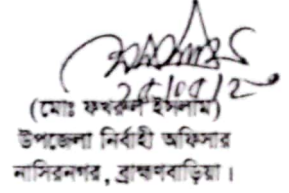 (মোঃ ফখরুল ইসলাম)
উপজেলা নির্বাহী অফিসার
নাসিরনগর, ব্রাহ্মণবাড়িয়া।